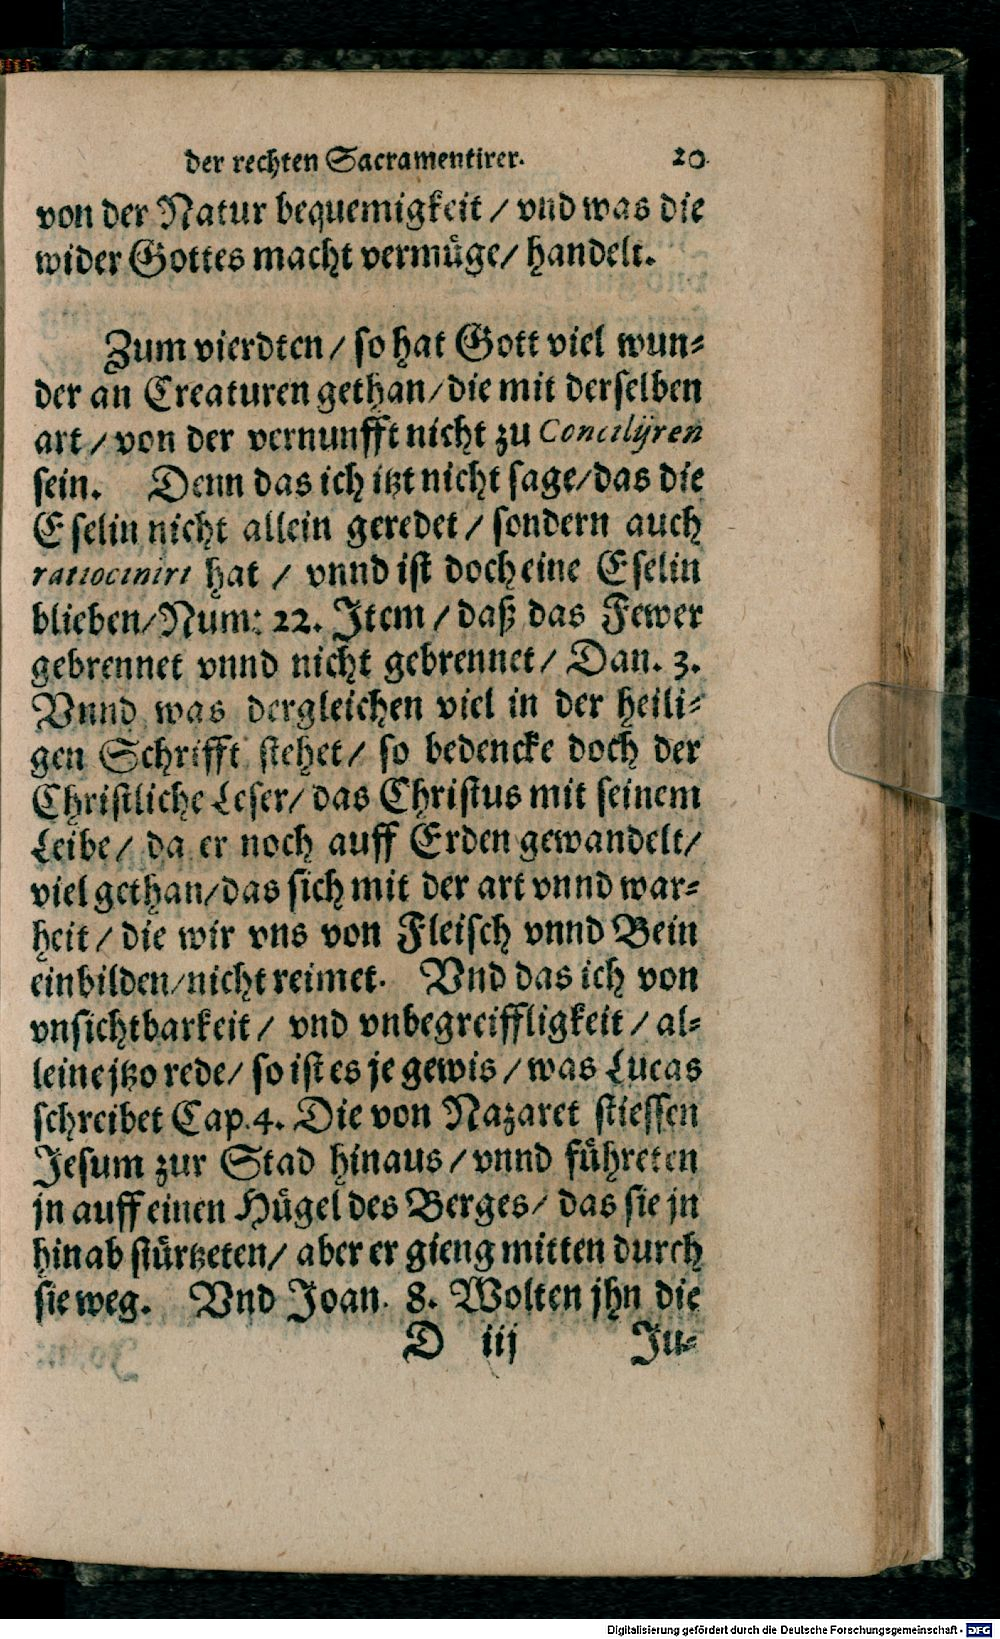 der rechten Sacramentirer. 20.
von der Natur bequemigkeit / vnd was die
wider Gottes macht vermüge / handelt.
Zum vierdten / so hat Gott viel wun-
der an Creaturen gethan / die mit derselben
art / von der vernunfft nicht zu Concilijren
sein. Denn das ich itzt nicht sage / das die
Eselin nicht allein geredet / sondern auch
ratiocinirt hat / vnnd ist doch eine Eselin
blieben / Num: 22. Item / daß das Fewer
gebrennet vnnd nicht gebrennet / Dan. 3.
Vnnd was dergleichen viel in der heili-
gen Schrifft stehet / so bedencke doch der
Christliche Leser / das Christus mit seinem
Leibe / da er noch auff Erden gewandelt /
viel gethan / das sich mit der art vnnd war-
heit / die wir vns von Fleisch vnnd Bein
einbilden / nicht reimet. Vnd das ich von
vnsichtbarkeit / vnd vnbegreiffligkeit / al-
leine jtzo rede / so ist es je gewis / was Lucas
schreibet Cap. 4. Die von Nazaret stiessen
Jesum zur Stad hinaus / vnnd führeten
jn auff einen Hügel des Berges / das sie jn
hinab stürtzeten / aber er gieng mitten durch
sie weg. Vnd Joan. 8. Wolten jhn die
D iij Ju-
Digitalisierung gefördert durch die Deutsche Forschungsgemeinschaft - DFG